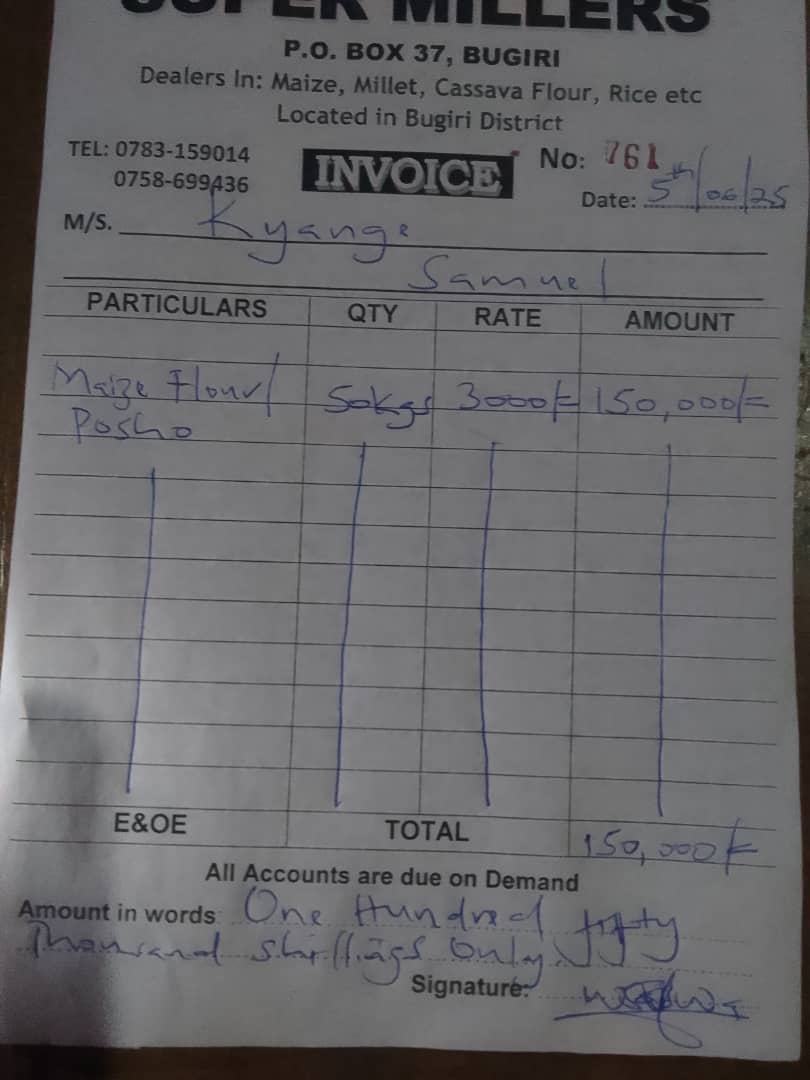 SUPER MILLERS
P.O. BOX 37, BUGIRI
Dealers In: Maize, Millet, Cassava Flour, Rice etc
Located in Bugiri District
TEL: 0783-159014
0758-699436
INVOICE
No: 761
Date: 5th/06/25
M/S. Kyange
Samuel
PARTICULARS QTY RATE AMOUNT
Maize Flour/ 50kgs 3000/= 150,000/=
Posho
E&OE TOTAL 150,000/=
All Accounts are due on Demand
Amount in words: One Hundred fifty
Thousand shillings Only.
Signature: